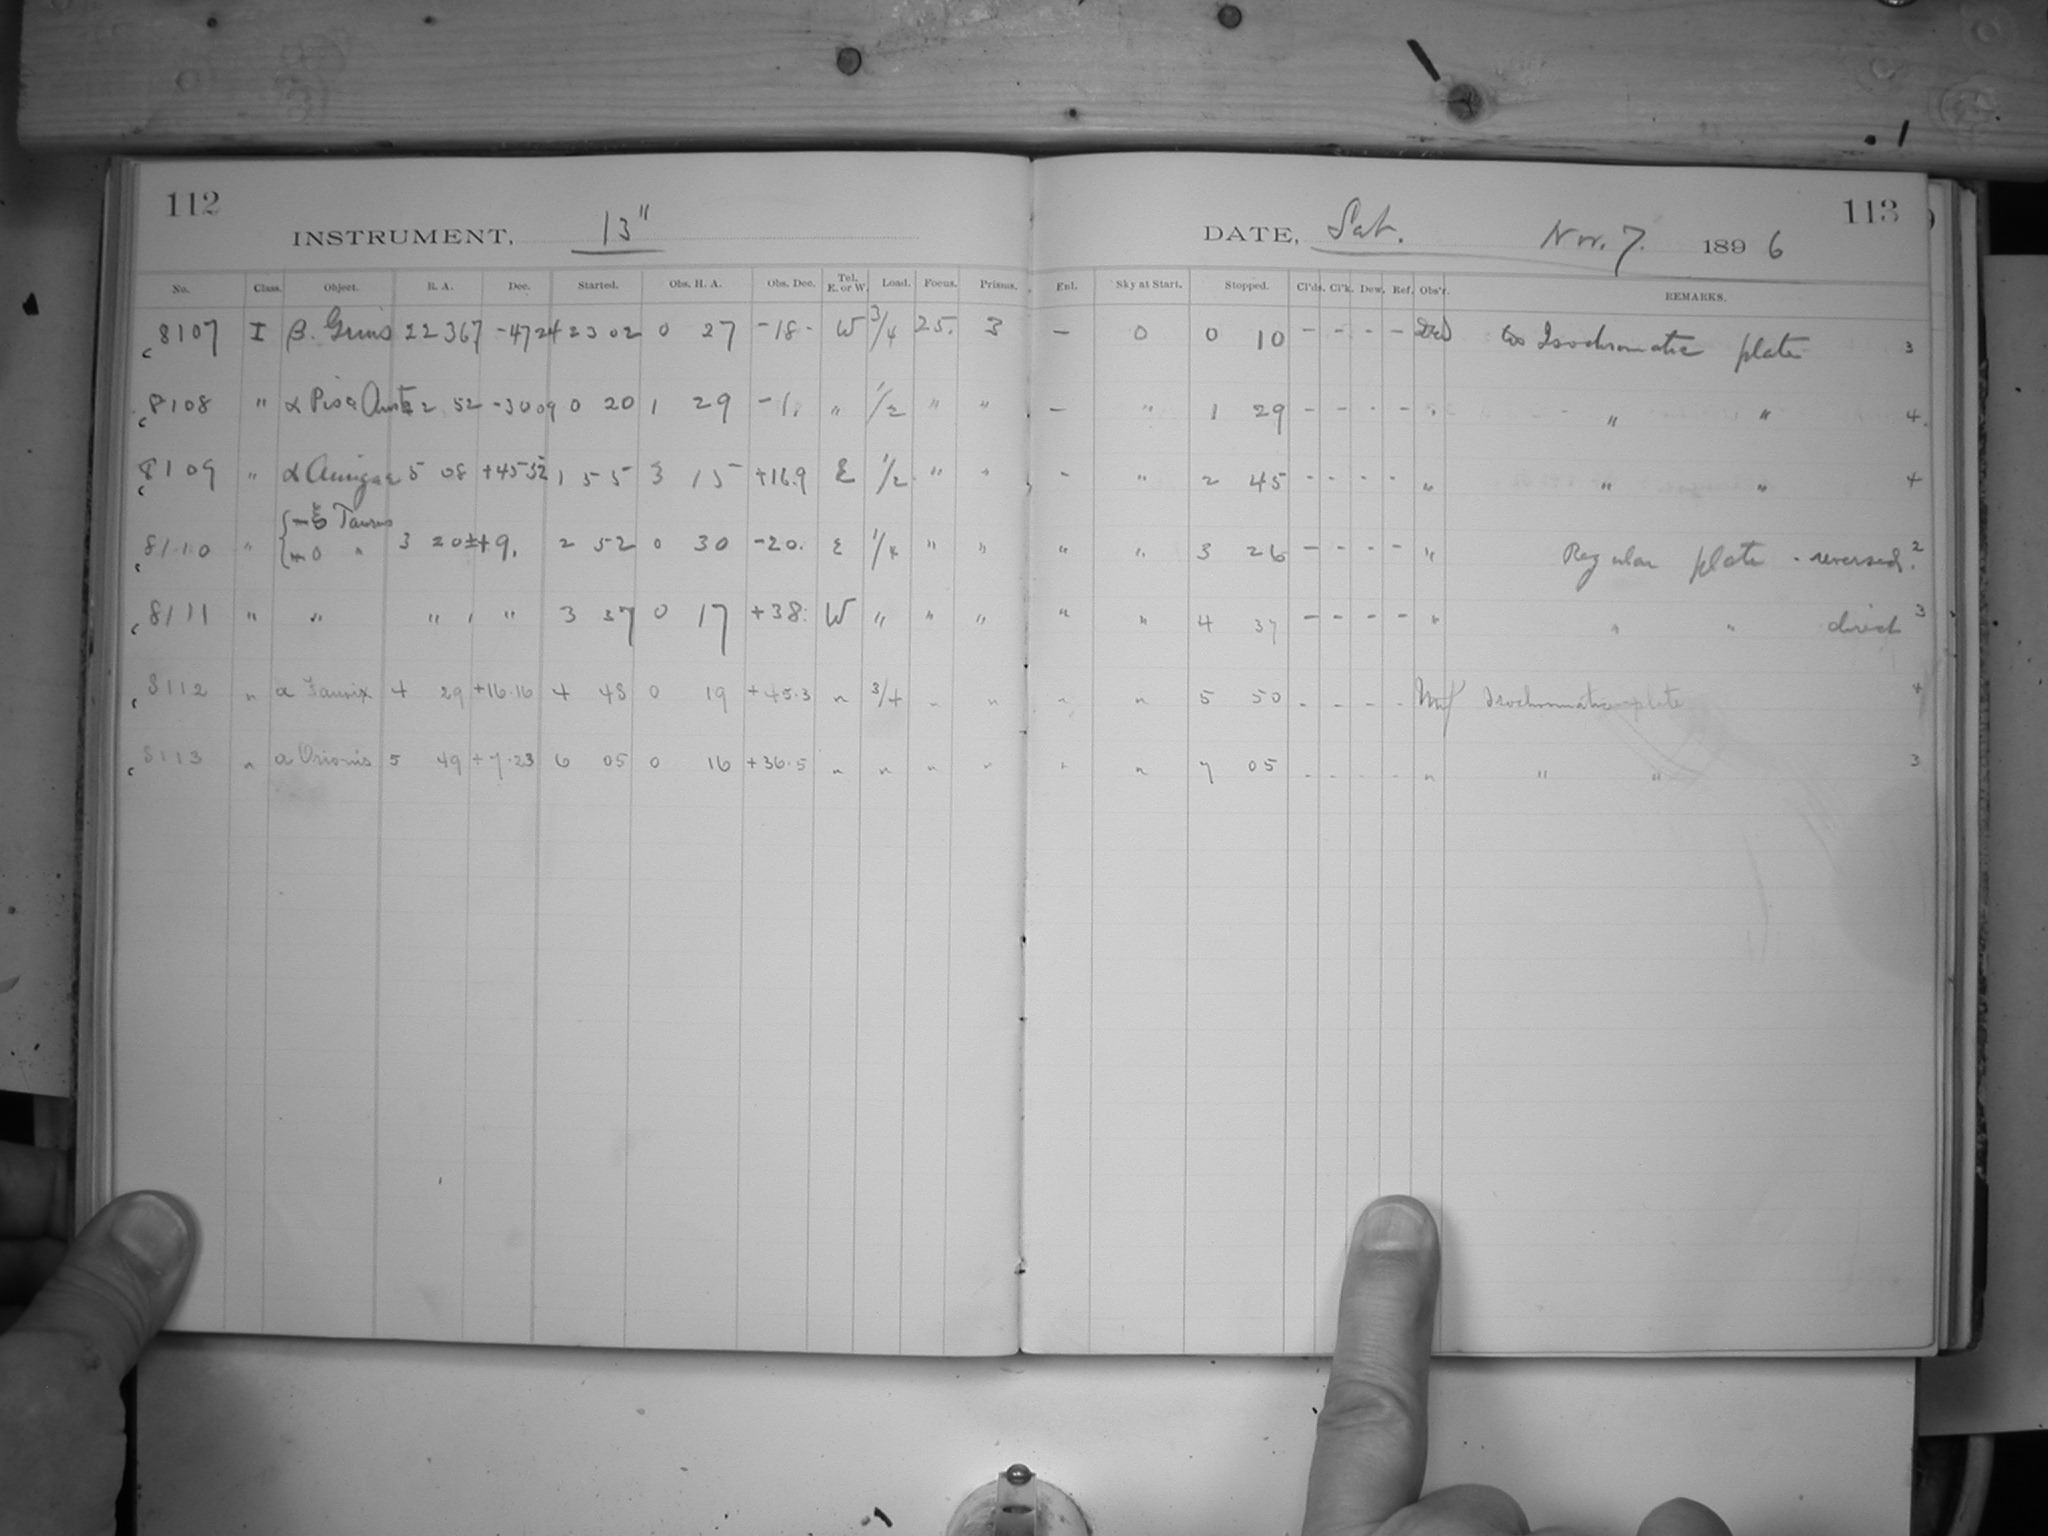 112
INSTRUMENT, 13"
No. Class. Object. R. A. Dec. Started. Obs. H. A. Obs. Dec. Tel. E. or W. Load. Focus. Prisms.
c 8107 I β. Gruis 22 367 -47 24 23 02 0 27 -18. W 3/4 25. 3
c 8108 " α Pisc Aust 22 52 -30 09 0 20 1 29 -1. " 1/2 " "
c 8109 " α Aurigae 5 08 +45 52 1 55 3 15 +16.9 E 1/2 " "
ξ Taurus
c 8110 " o " 3 20± +9. 2 52 0 30 -20. E 1/4 " "
c 8111 " " " " 3 37 0 17 +38. W " " "
c 8112 " α Taurix 4 29 +16.16 4 48 0 19 +45.3 " 3/4 " "
c 8113 " α Orionis 5 49 +7.23 6 05 0 16 +36.5 " " " "
113
DATE, Sat. Nov. 7. 1896
Enl. Sky at Start. Stopped. Cl'ds. Cl'k. Dew. Ref. Obs'r. REMARKS.
- 0 0 10 - - - - Isochromatic plate 3
- " 1 29 - - - - " " " 4
- " 2 45 - - - - " " " 4
" " 3 26 - - - - " Regular plate - reversed. 2
" " 4 37 - - - - " " " direct 3
" " 5 50 - - - - Isochromatic plate 4
" " 7 05 - - - - " " " 3